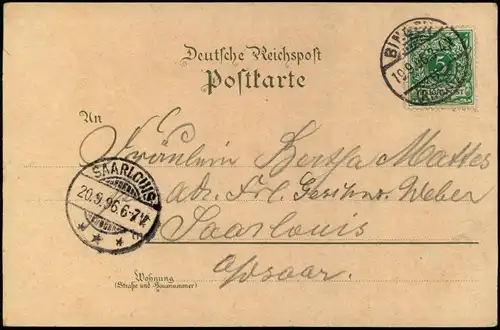 Deutsche Reichspost
Postkarte
BINGEN
5
An
Fräulein Bertha Mattes
adr. Frl. Geschw. Weber
Saarlouis
SAARLOUIS
20.9.96.6-7V.
Wohnung
(Straße und Hausnummer)